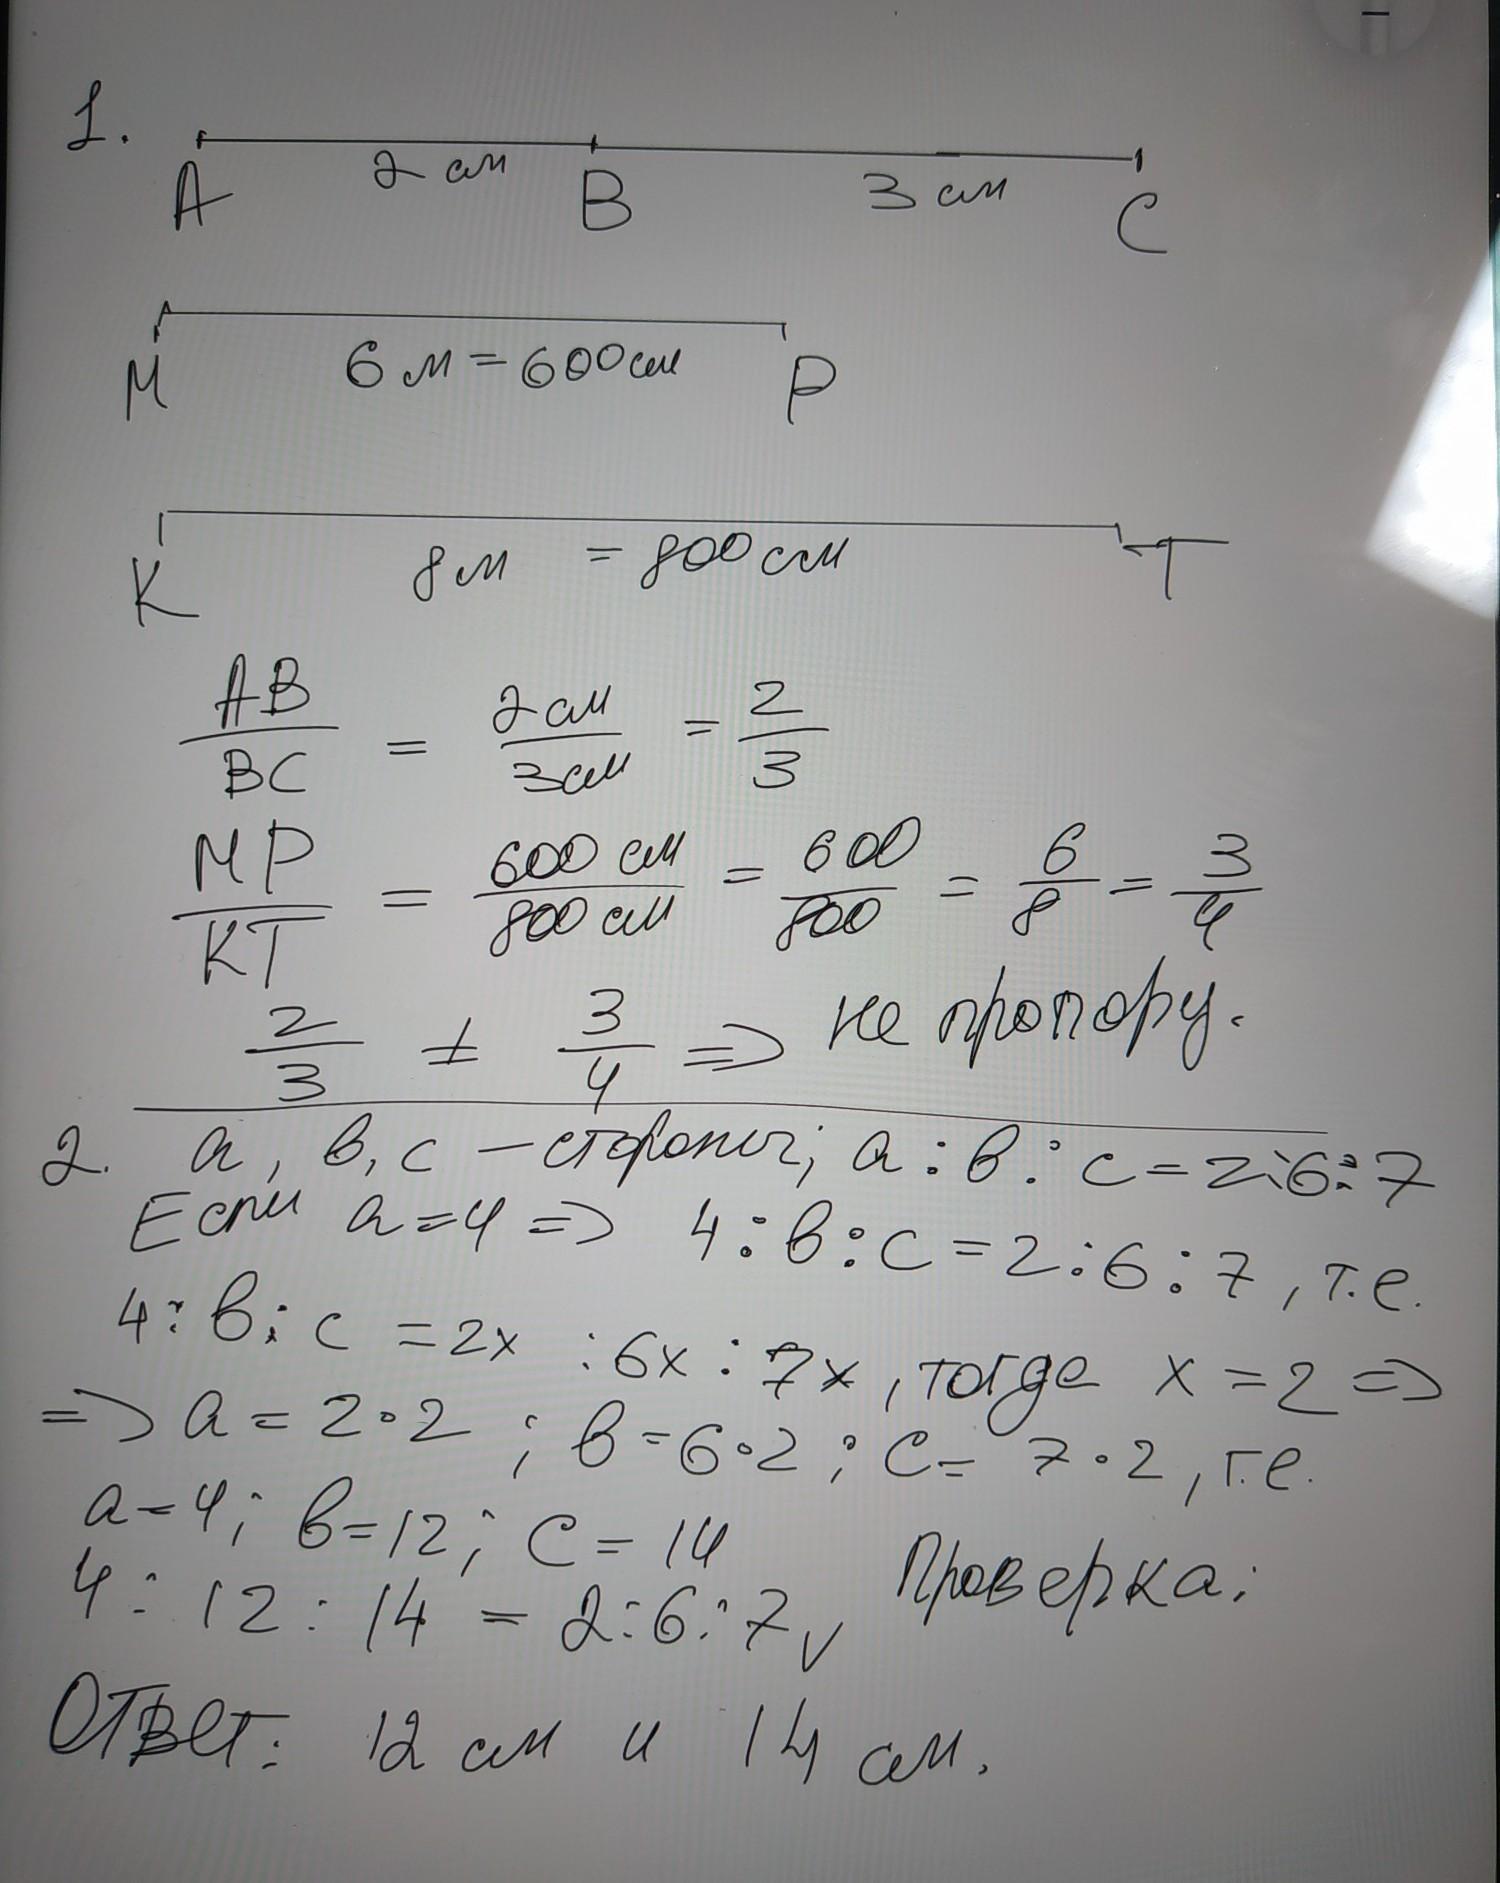 1.
A 2 см B 3 см C
M 6 м = 600 см P
K 8 м = 800 см T
AB/BC = 2 см/3 см = 2/3
MP/KT = 600 см/800 см = 600/800 = 6/8 = 3/4
2/3 ≠ 3/4 => не пропорц.
2. a, в, c – стороны; a : в : c = 2:6:7
Если a=4 => 4 : в : c = 2 : 6 : 7, т.е.
4 : в : c = 2x : 6x : 7x, тогда x = 2 =>
=> a = 2·2 ; в = 6·2 ; c = 7·2, т.е.
a = 4; в = 12; c = 14
Проверка:
4 : 12 : 14 = 2 : 6 : 7 v
Ответ: 12 см и 14 см.